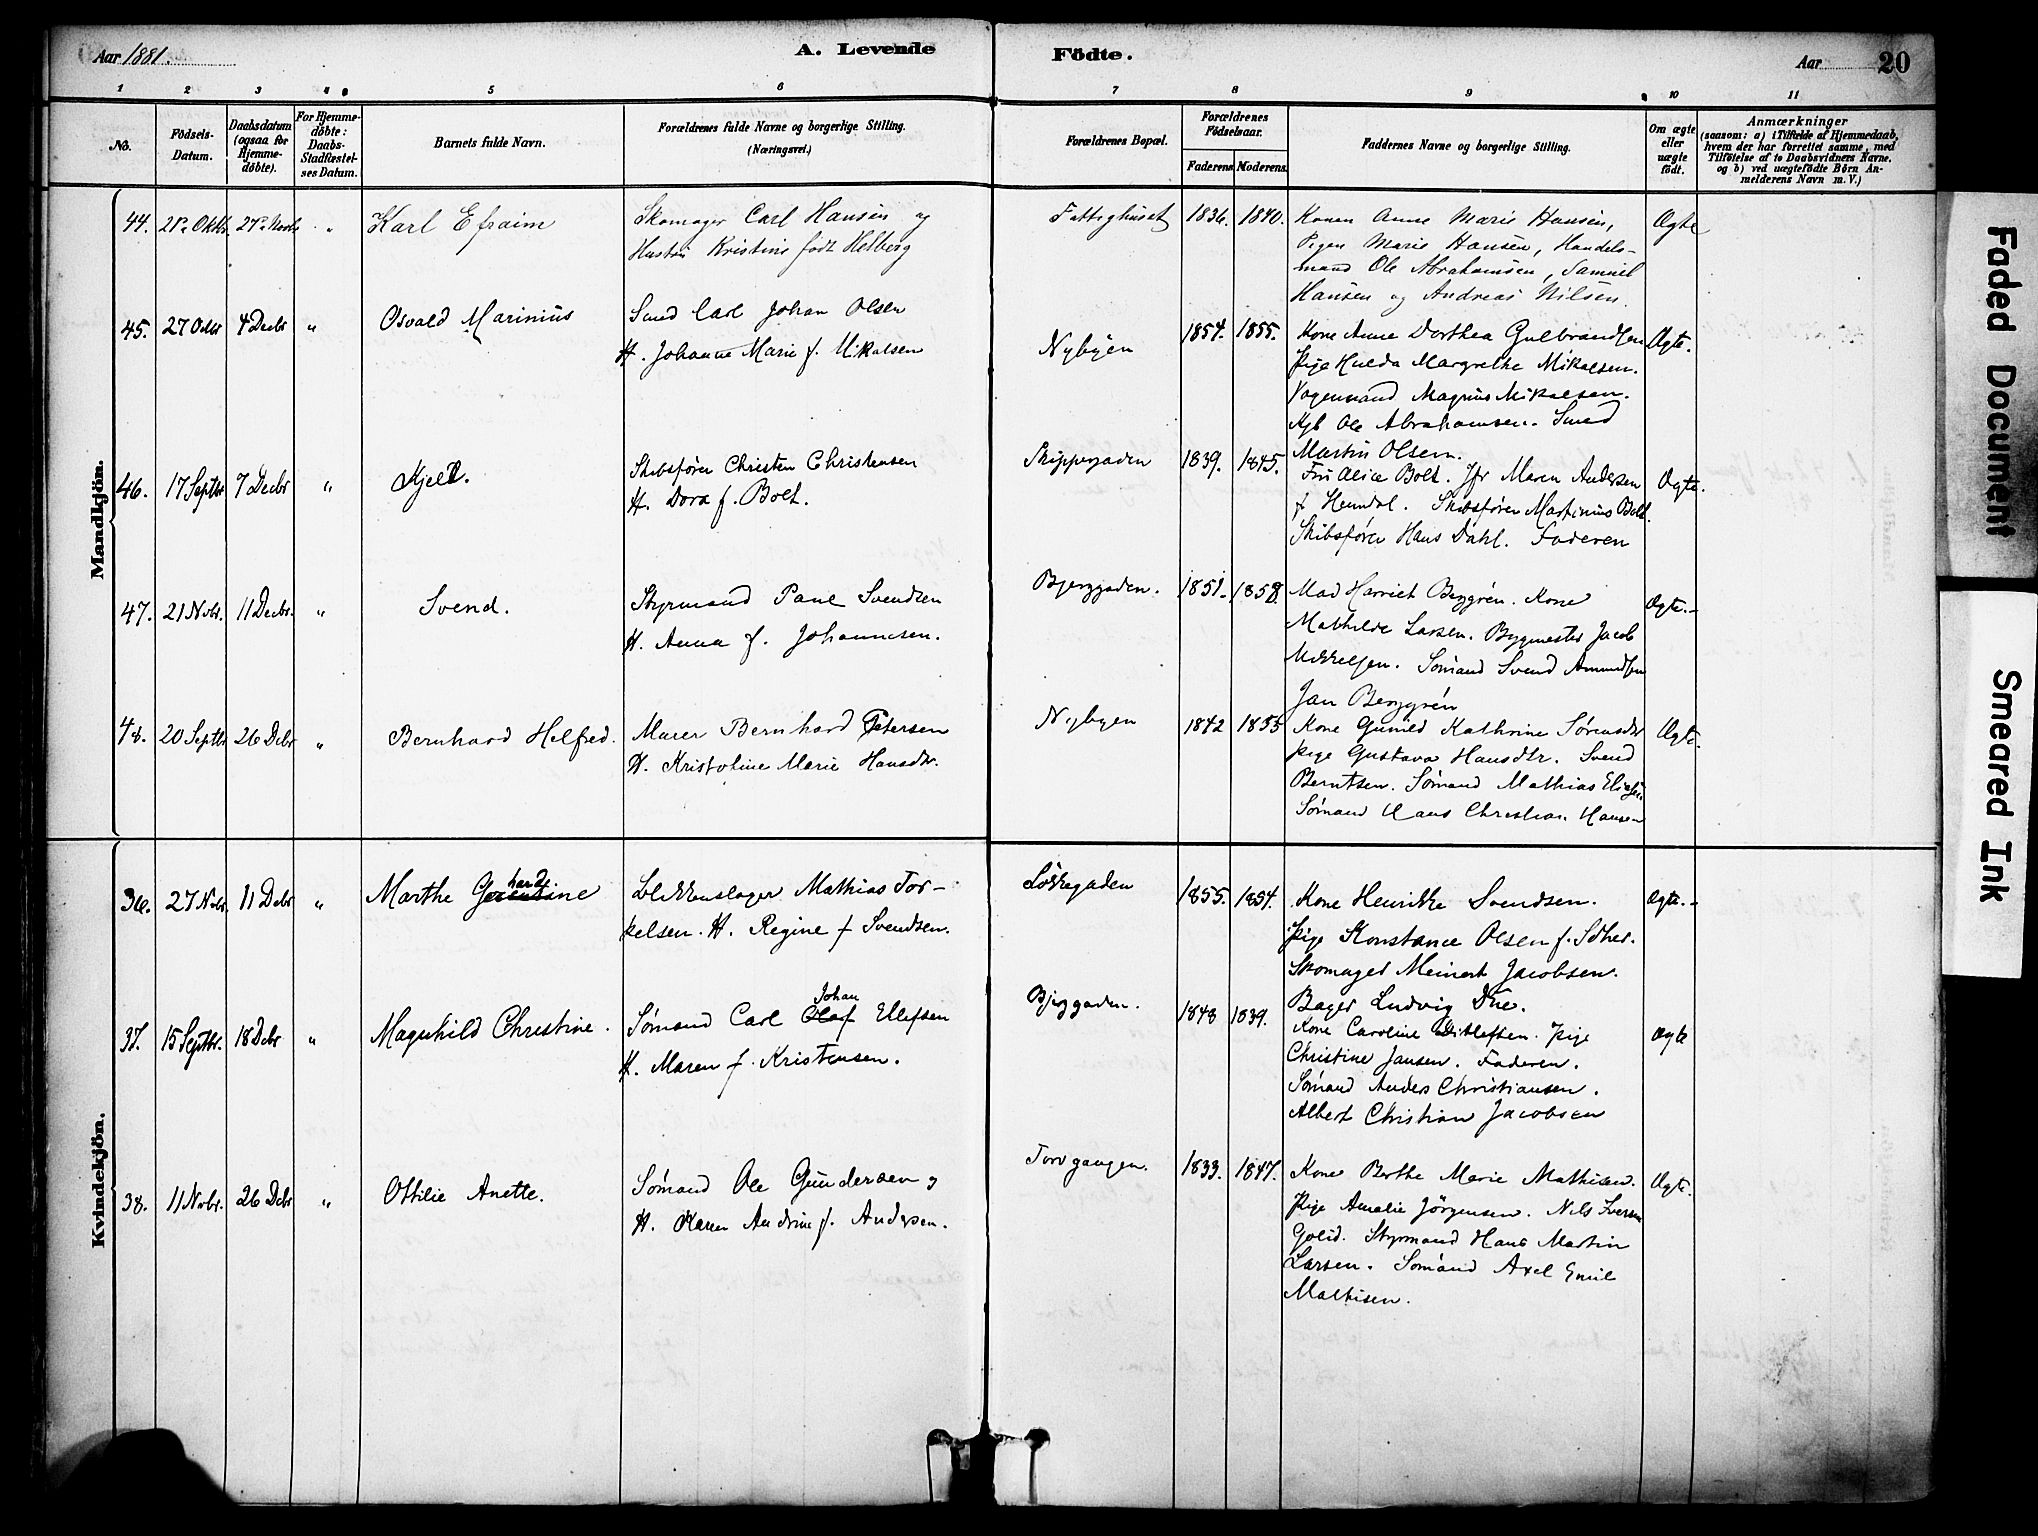 Aar 1881.
A. Levende
Födte.
Aar
20
1 2 3 4 5 6 7 8 9 10 11
No.
Födsels-Datum.
Daabsdatum (ogsaa for Hjemme-döbte).
For Hjemme-döbte: Daabs-Stadfæstel-ses Datum.
Barnets fulde Navn.
Forældrenes fulde Navne og borgerlige Stilling.
(Næringsvei.)
Forældrenes Bopæl.
Forældrenes Födselsaar.
Faderens. Moderens.
Faddernes Navne og borgerlige Stilling.
Om ægte eller uægte födt.
Anmærkninger
(saasom: a) i Tilfælde af Hjemmedaab,
hvem der har forrettet samme, med
Tilföielse af to Daabsvidners Navne,
og b) ved uægtefödte Börn An-
melderens Navn m. V.)
Mandkjön.
44. 21de Oktbr. 27de Novbr. " Karl Efraim
Skomager Carl Hansen og
Hustru Kristine født Helberg
Fattighuset 1836. 1840.
Konen Anne Marie Hansen,
Pigen Marie Hansen, Handels-
mand Ole Abrahamsen, Samuel
Hansen og Andreas Nilsen.
Ægte
45. 27 Octbr 4 Decbr " Osvald Marinius
Smed Carl Johan Olsen
H. Johanne Marie f. Mikalsen
Nybyen 1854. 1855.
Kone Anne Dorthea Gulbrandsen
Pige Hulda Margrethe Mikaelsen.
Vognmand Magnus Mikaelsen.
Kjb Ole Abrahamsen. Smed
Martin Olsen.
Ægte.
46. 17 Septbr 7 Decbr " Kjeld.
Skibsfører Christen Christensen
H. Dora f. Bolt.
Skippergaden 1839. 1845.
Fru Alice Bolt. Jfr Maren Andersen
f Hemdal. Skibsfører Martinius Bolt.
Skibsfører Hans Dahl. Faderen
Ægte.
47. 21 Novbr. 11 Decbr. " Svend.
Styrmand Paul Svendsen
H. Anna f. Johannesen.
Bjerggaden. 1851. 1858.
Mad Harriet Berggrén. Kone
Mathilde Larsen. Bygmester Jacob
Mikkelsen. Sømand Svend Amundsen
Jan Berggrén
Ægte.
48. 20 Septbr 26 Dcbr " Bernhard Helfred.
Murer Bernhard Petersen
H. Kristoline Marie Hansdtr.
Nybyen 1842 1855
Kone Gunild Kathrine Sørensdtr
Pige Gustava Hansdtr. Svend
Berntsen. Sømand Mathias Eliasen
Sømand Hans Christian Hansen
Ægte.
Kvindekjön.
36. 27 Novbr. 11 Dcbr " Marthe Gerhardine
Blikkenslager Mathias Tor-
kelsen. H. Regine f Svendsen.
Løkkegaden 1855. 1854.
Kone Henrikke Svendsen.
Pige Konstance Olsen f. Sther.
Skomager Meinert Jacobsen.
Bager Ludvig Due.
Ægte.
37. 15 Septbr. 18 Dcbr " Magnhild Christine.
Johan
Sømand Carl Olaf Ellefsen
H. Maren f. Kristensen.
Bjerggaden. 1848 1839.
Kone Caroline Ditlefsen. Pige
Christine Jansen. Faderen.
Sømand Anders Christiansen.
Albert Christian Jacobsen
Ægte
38. 11 Novbr. 26 Dcbr " Ottilie Anette.
Sømand Ole Gundersen og
H. Karen Andrine f. Andersen.
Torvgangen. 1833. 1847.
Kone Berthe Marie Mathisen.
Pige Amalie Jörgensen. Nils Iversen
Golid. Styrmand Hans Martin
Larsen. Sømand Axel Emil
Mathisen.
Ægte.
Faded Document
Smeared Ink